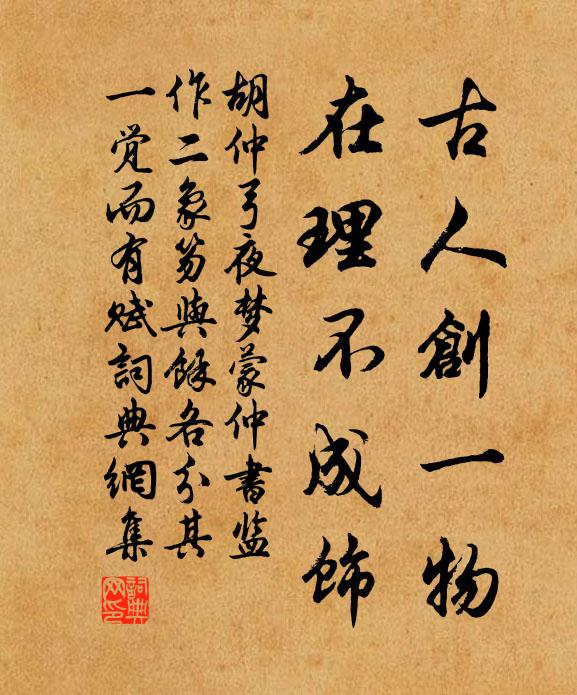 古人創一物
在理不成飾
胡仲弓夜梦蒙仲書监
作二象笏與餘各分其
一觉而有赋詞典網集